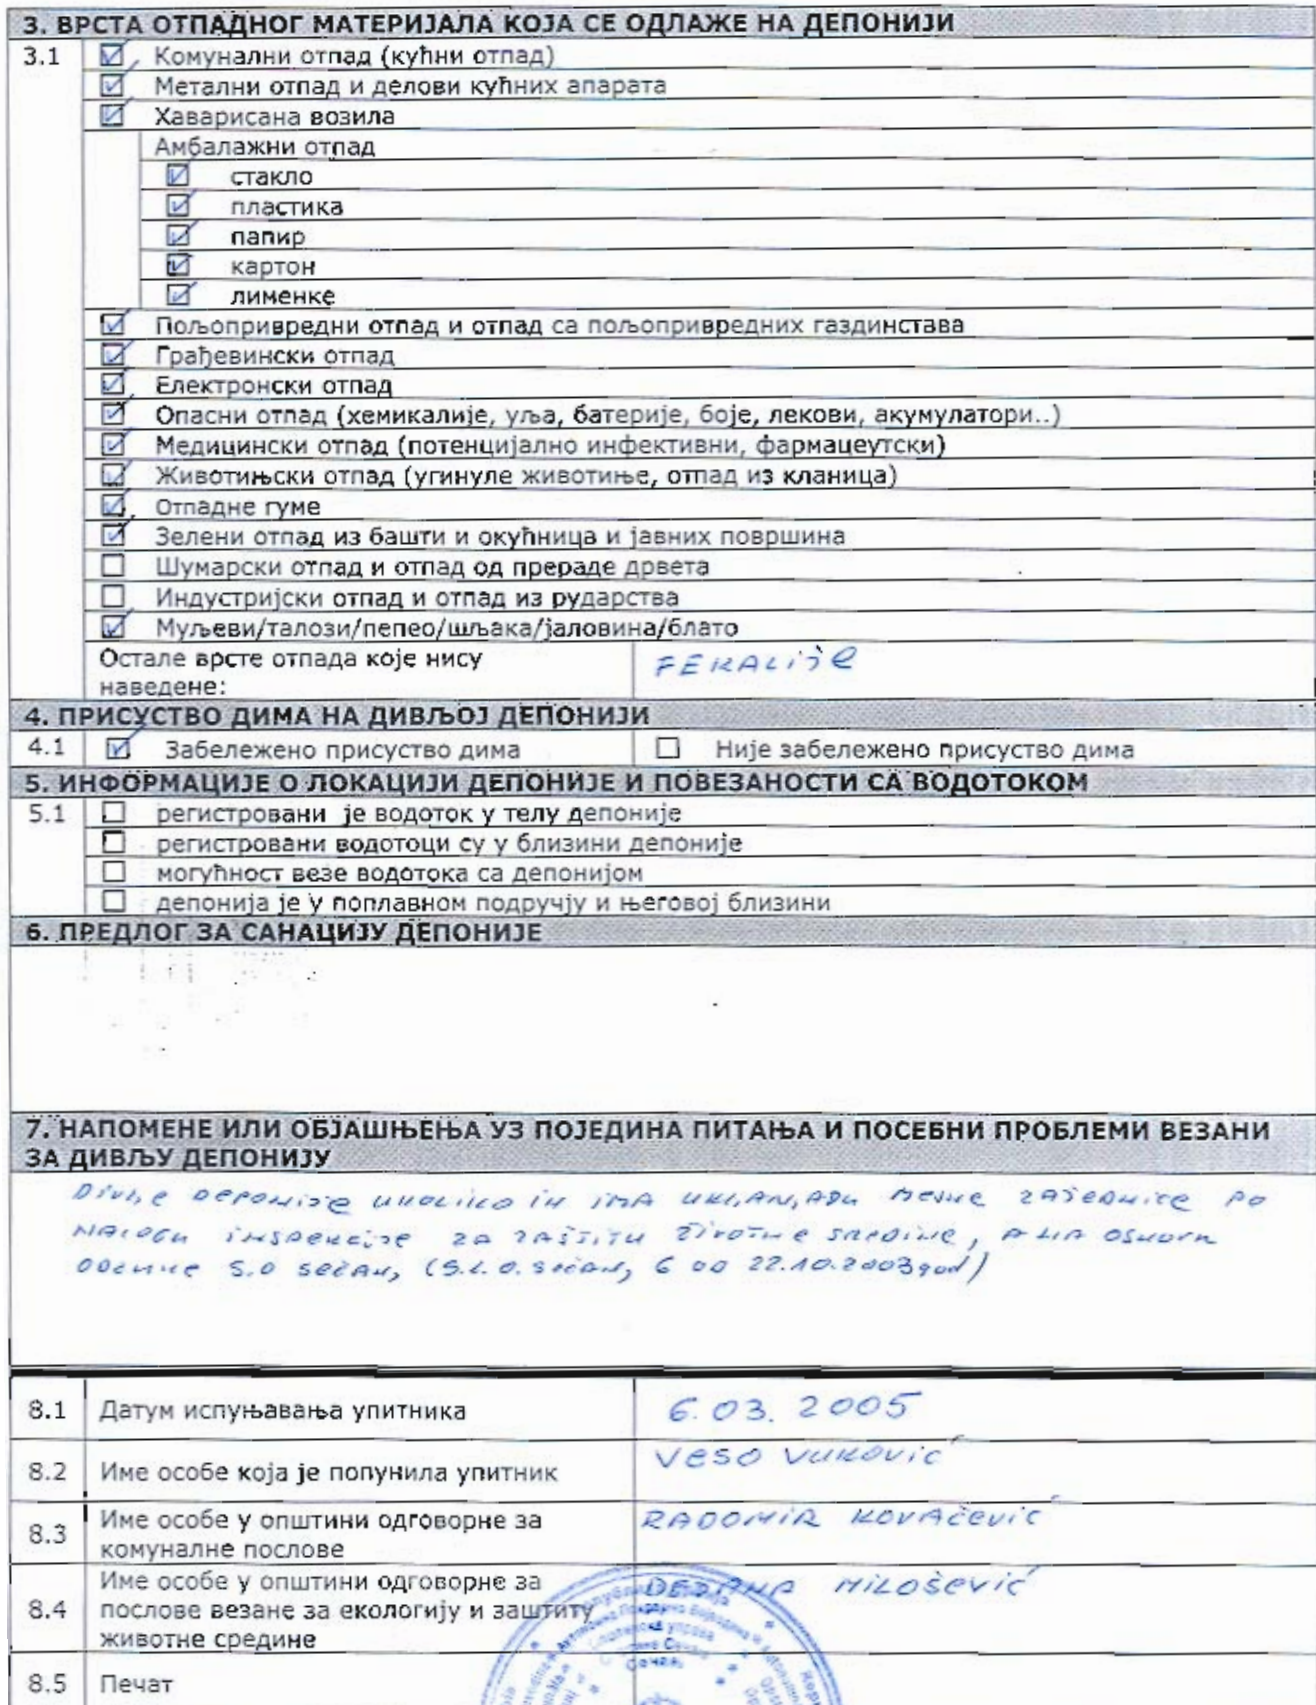 3. ВРСТА ОТПАДНОГ МАТЕРИЈАЛА КОЈА СЕ ОДЛАЖЕ НА ДЕПОНИЈИ
3.1 Комунални отпад (кућни отпад)
Метални отпад и делови кућних апарата
Хаварисана возила
Амбалажни отпад
стакло
пластика
папир
картон
лименке
Пољопривредни отпад и отпад са пољопривредних газдинстава
Грађевински отпад
Електронски отпад
Опасни отпад (хемикалије, уља, батерије, боје, лекови, акумулатори..)
Медицински отпад (потенцијално инфективни, фармацеутски)
Животињски отпад (угинуле животиње, отпад из кланица)
Отпадне гуме
Зелени отпад из башти и окућница и јавних површина
Шумарски отпад и отпад од прераде дрвета
Индустријски отпад и отпад из рударства
Муљеви/талози/пепео/шљака/јаловина/блато
Остале врсте отпада које нису FEKALIJE
наведене:
4. ПРИСУСТВО ДИМА НА ДИВЉОЈ ДЕПОНИЈИ
4.1 Забележено присуство дима Није забележено присуство дима
5. ИНФОРМАЦИЈЕ О ЛОКАЦИЈИ ДЕПОНИЈЕ И ПОВЕЗАНОСТИ СА ВОДОТОКОМ
5.1 регистровани је водоток у телу депоније
регистровани водотоци су у близини депоније
могућност везе водотока са депонијом
депонија је у поплавном подручју и његовој близини
6. ПРЕДЛОГ ЗА САНАЦИЈУ ДЕПОНИЈЕ
7. НАПОМЕНЕ ИЛИ ОБЈАШЊЕЊА УЗ ПОЈЕДИНА ПИТАЊА И ПОСЕБНИ ПРОБЛЕМИ ВЕЗАНИ
ЗА ДИВЉУ ДЕПОНИЈУ
DIVLJE DEPONIJE UKOLIKO IH IMA UKLANJAJU MESNE ZAJEDNICE PO
NALOGU INSPEKCIJE ZA ZAŠTITU ŽIVOTNE SREDINE, A NA OSNOVU
ODLUKE S.O SEČANJ (S.L.O. SEČANJ 6 OD 22.10.2003 god)
8.1 Датум испуњавања упитника 6.03. 2005
8.2 Име особе која је попунила упитник VESO VUKOVIĆ
8.3 Име особе у општини одговорне за RADOMIR KOVAČEVIĆ
комуналне послове
Име особе у општини одговорне за DEJANA MILOŠEVIĆ
8.4 послове везане за екологију и заштиту
животне средине
8.5 Печат